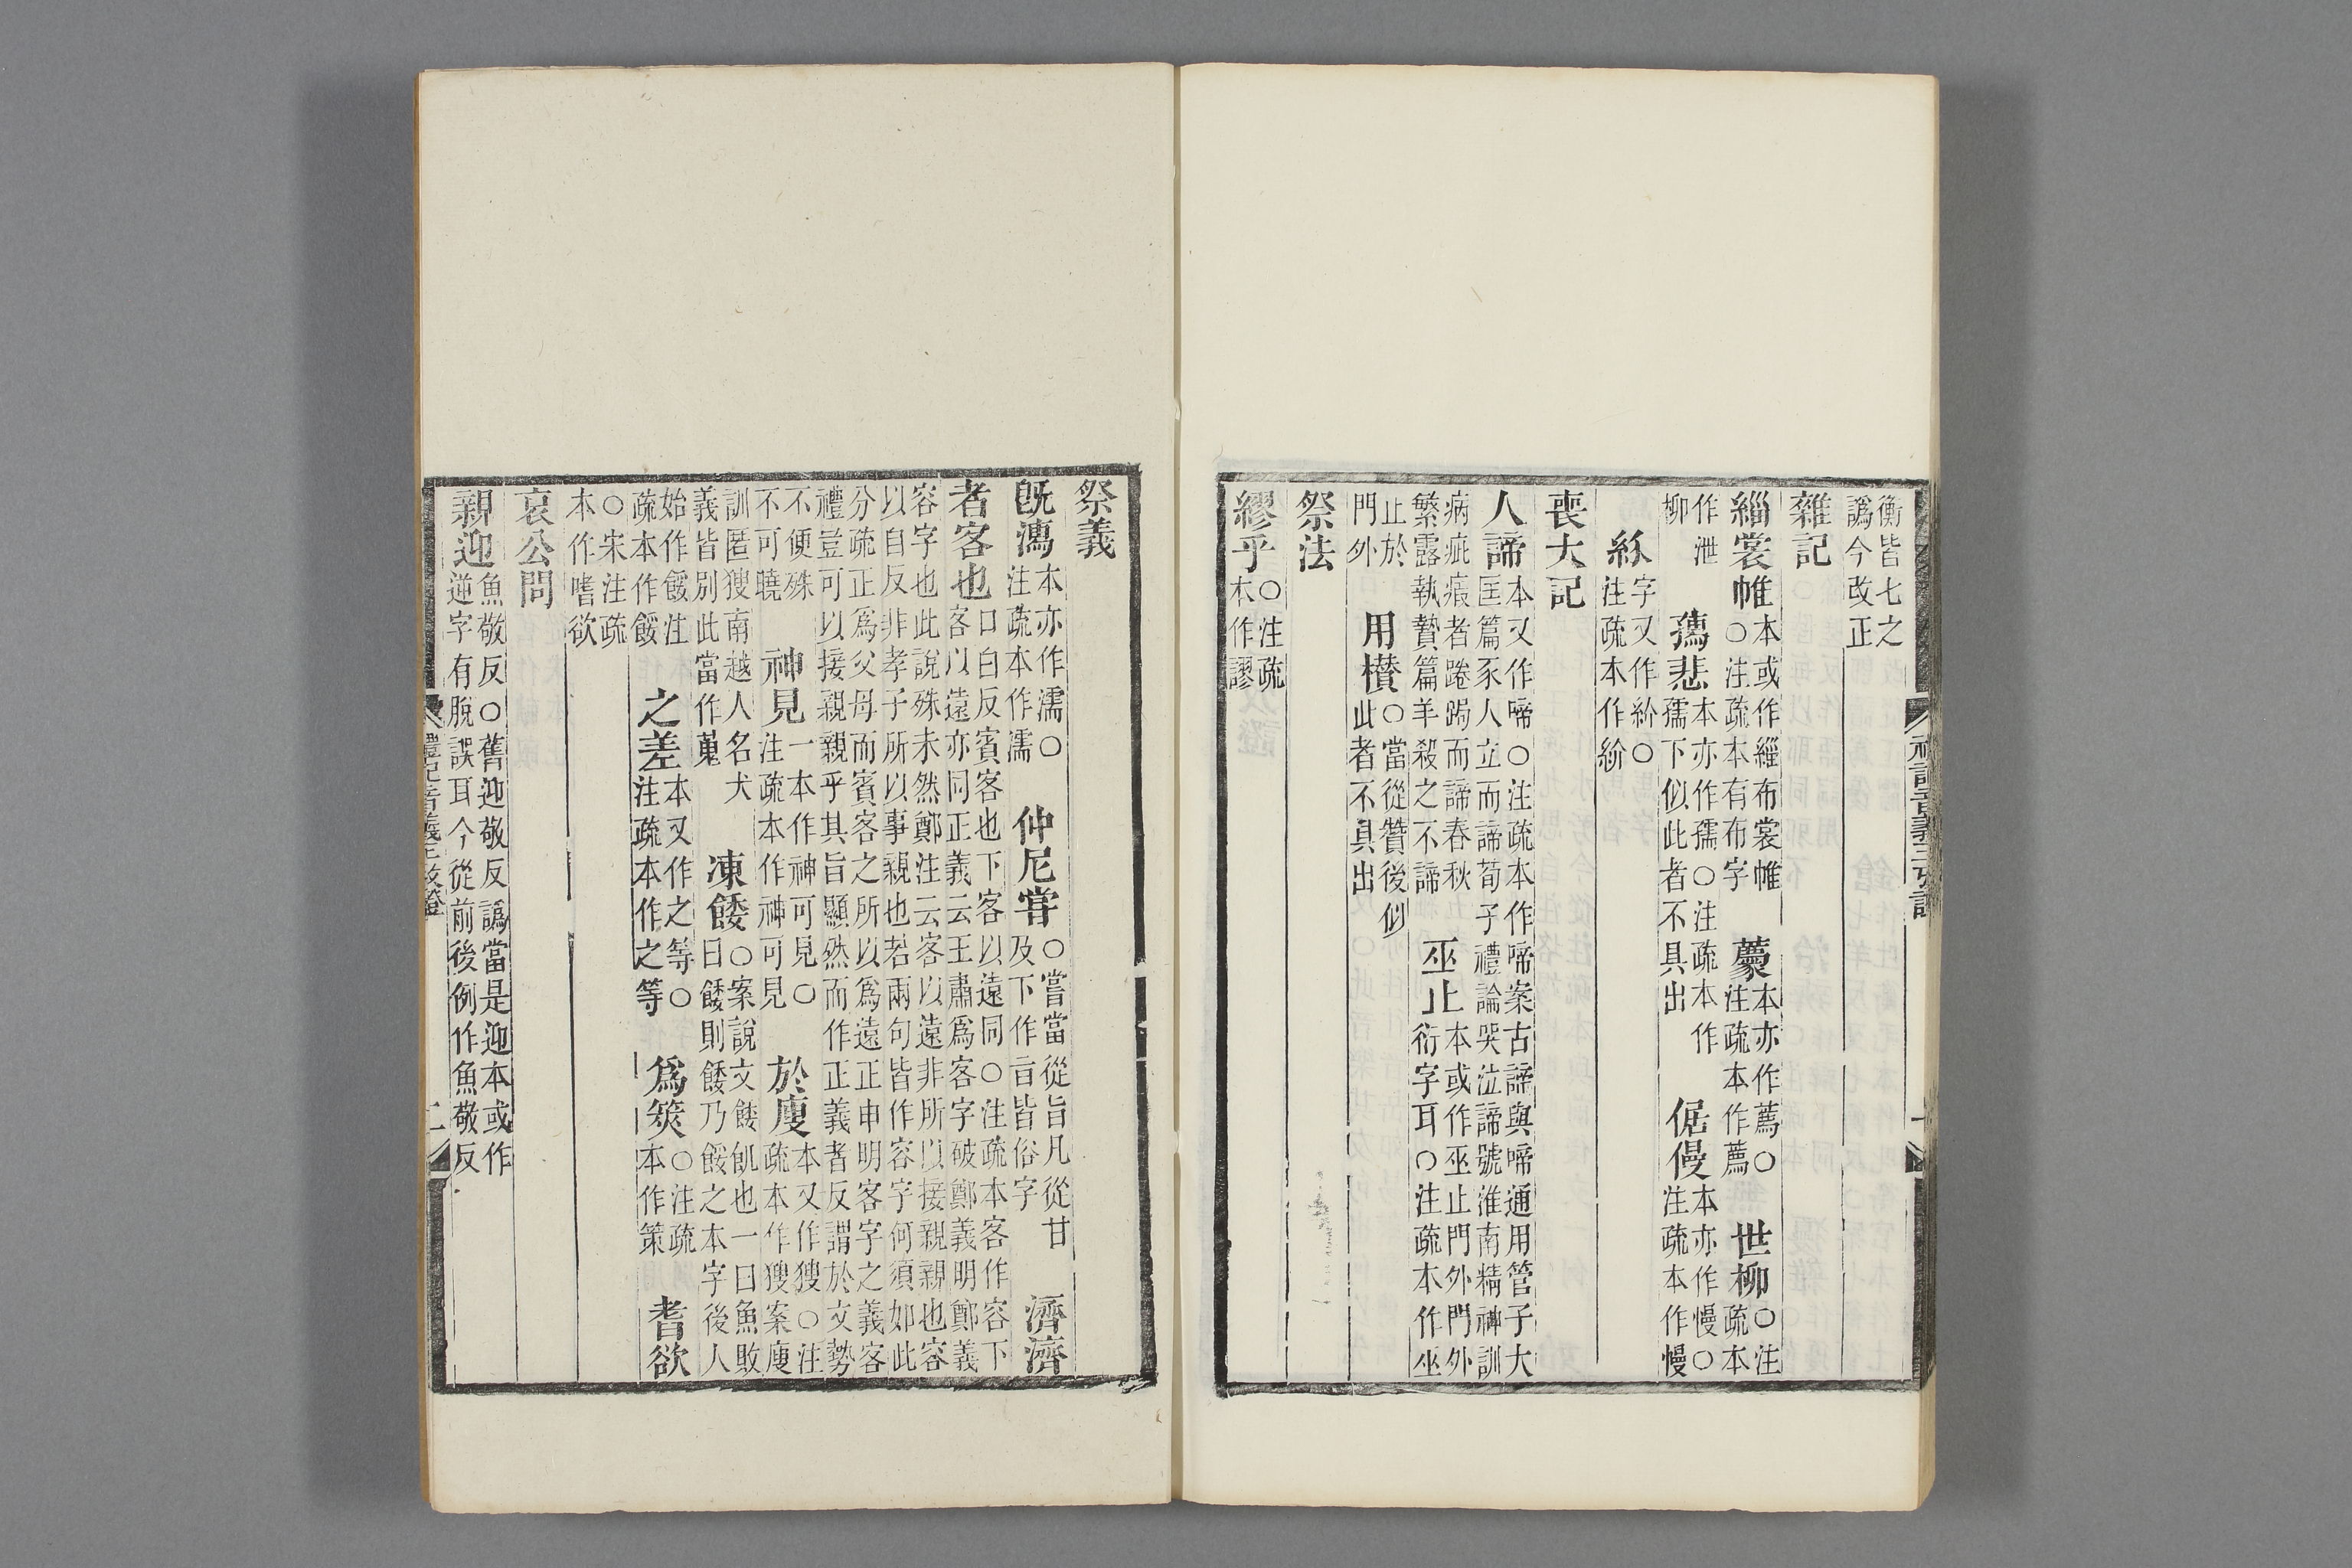 禮記音義三攷證
衡皆七之
譌今改正
雜記
緇裳帷 本或作緇布裳帷 ○注疏本有布字 虆 本亦作蔿○ 注疏本作蔿 世柳 ○注 疏本
作泄 柳 孺悲 本亦作孺○注疏本作 孺下似此者不具出 倨慢 本亦作慢○ 注疏本作慢
字又作紛○ 注疏本作紛
喪大記
人諦 本又作啼○注疏本作啼案古諦與啼通用管子大 匡篇豕人立而諦荀子禮論哭泣諦號淮南精神訓
病疵瘕者踡跼而諦春秋 繁露執贄篇羊殺之不諦 巫止 本或作巫止門外門外 衍字耳○注疏本作巫
止於 門外 用欑 ○當從贊後似 此者不具出
祭法
繆乎 ○注疏 本作謬
祭義
旣濡 本亦作濡○ 注疏本作濡 仲尼甞 ○嘗當從旨凡從甘 及下作㫖皆俗字 濟濟
者客也 口白反賓客也下客以遠同○注疏本客作容下 客以遠亦同正義云王肅爲客字破鄭義明鄭義
容字也此說殊未然鄭注云客以遠非所以接親親也容 以自反非孝子所以事親也若兩句皆作容字何須如此
分疏正爲父母而賓客之所以爲遠正申明客字之義客 禮豈可以接親親乎其旨顯然而作正義者反謂於文勢
不便殊 不可曉 神見 一本作神可見○ 注疏本作神可見 於廋 本又作獀○注 疏本作獀案廋
訓匿獀南越人名犬 義皆別此當作蒐 凍餧 ○案說文餧飢也一曰魚敗 曰餧則餧乃餒之本字後人
始作餒注 疏本作餒 之差 本又作之等○ 注疏本作之等 爲筴 ○注疏 本作策 耆欲
○宋注疏 本作嗜欲
哀公問
親迎 魚敬反○舊迎敬反譌當是迎本或作 逆字有脫誤耳今從前後例作魚敬反
禮記音義三攷證 二